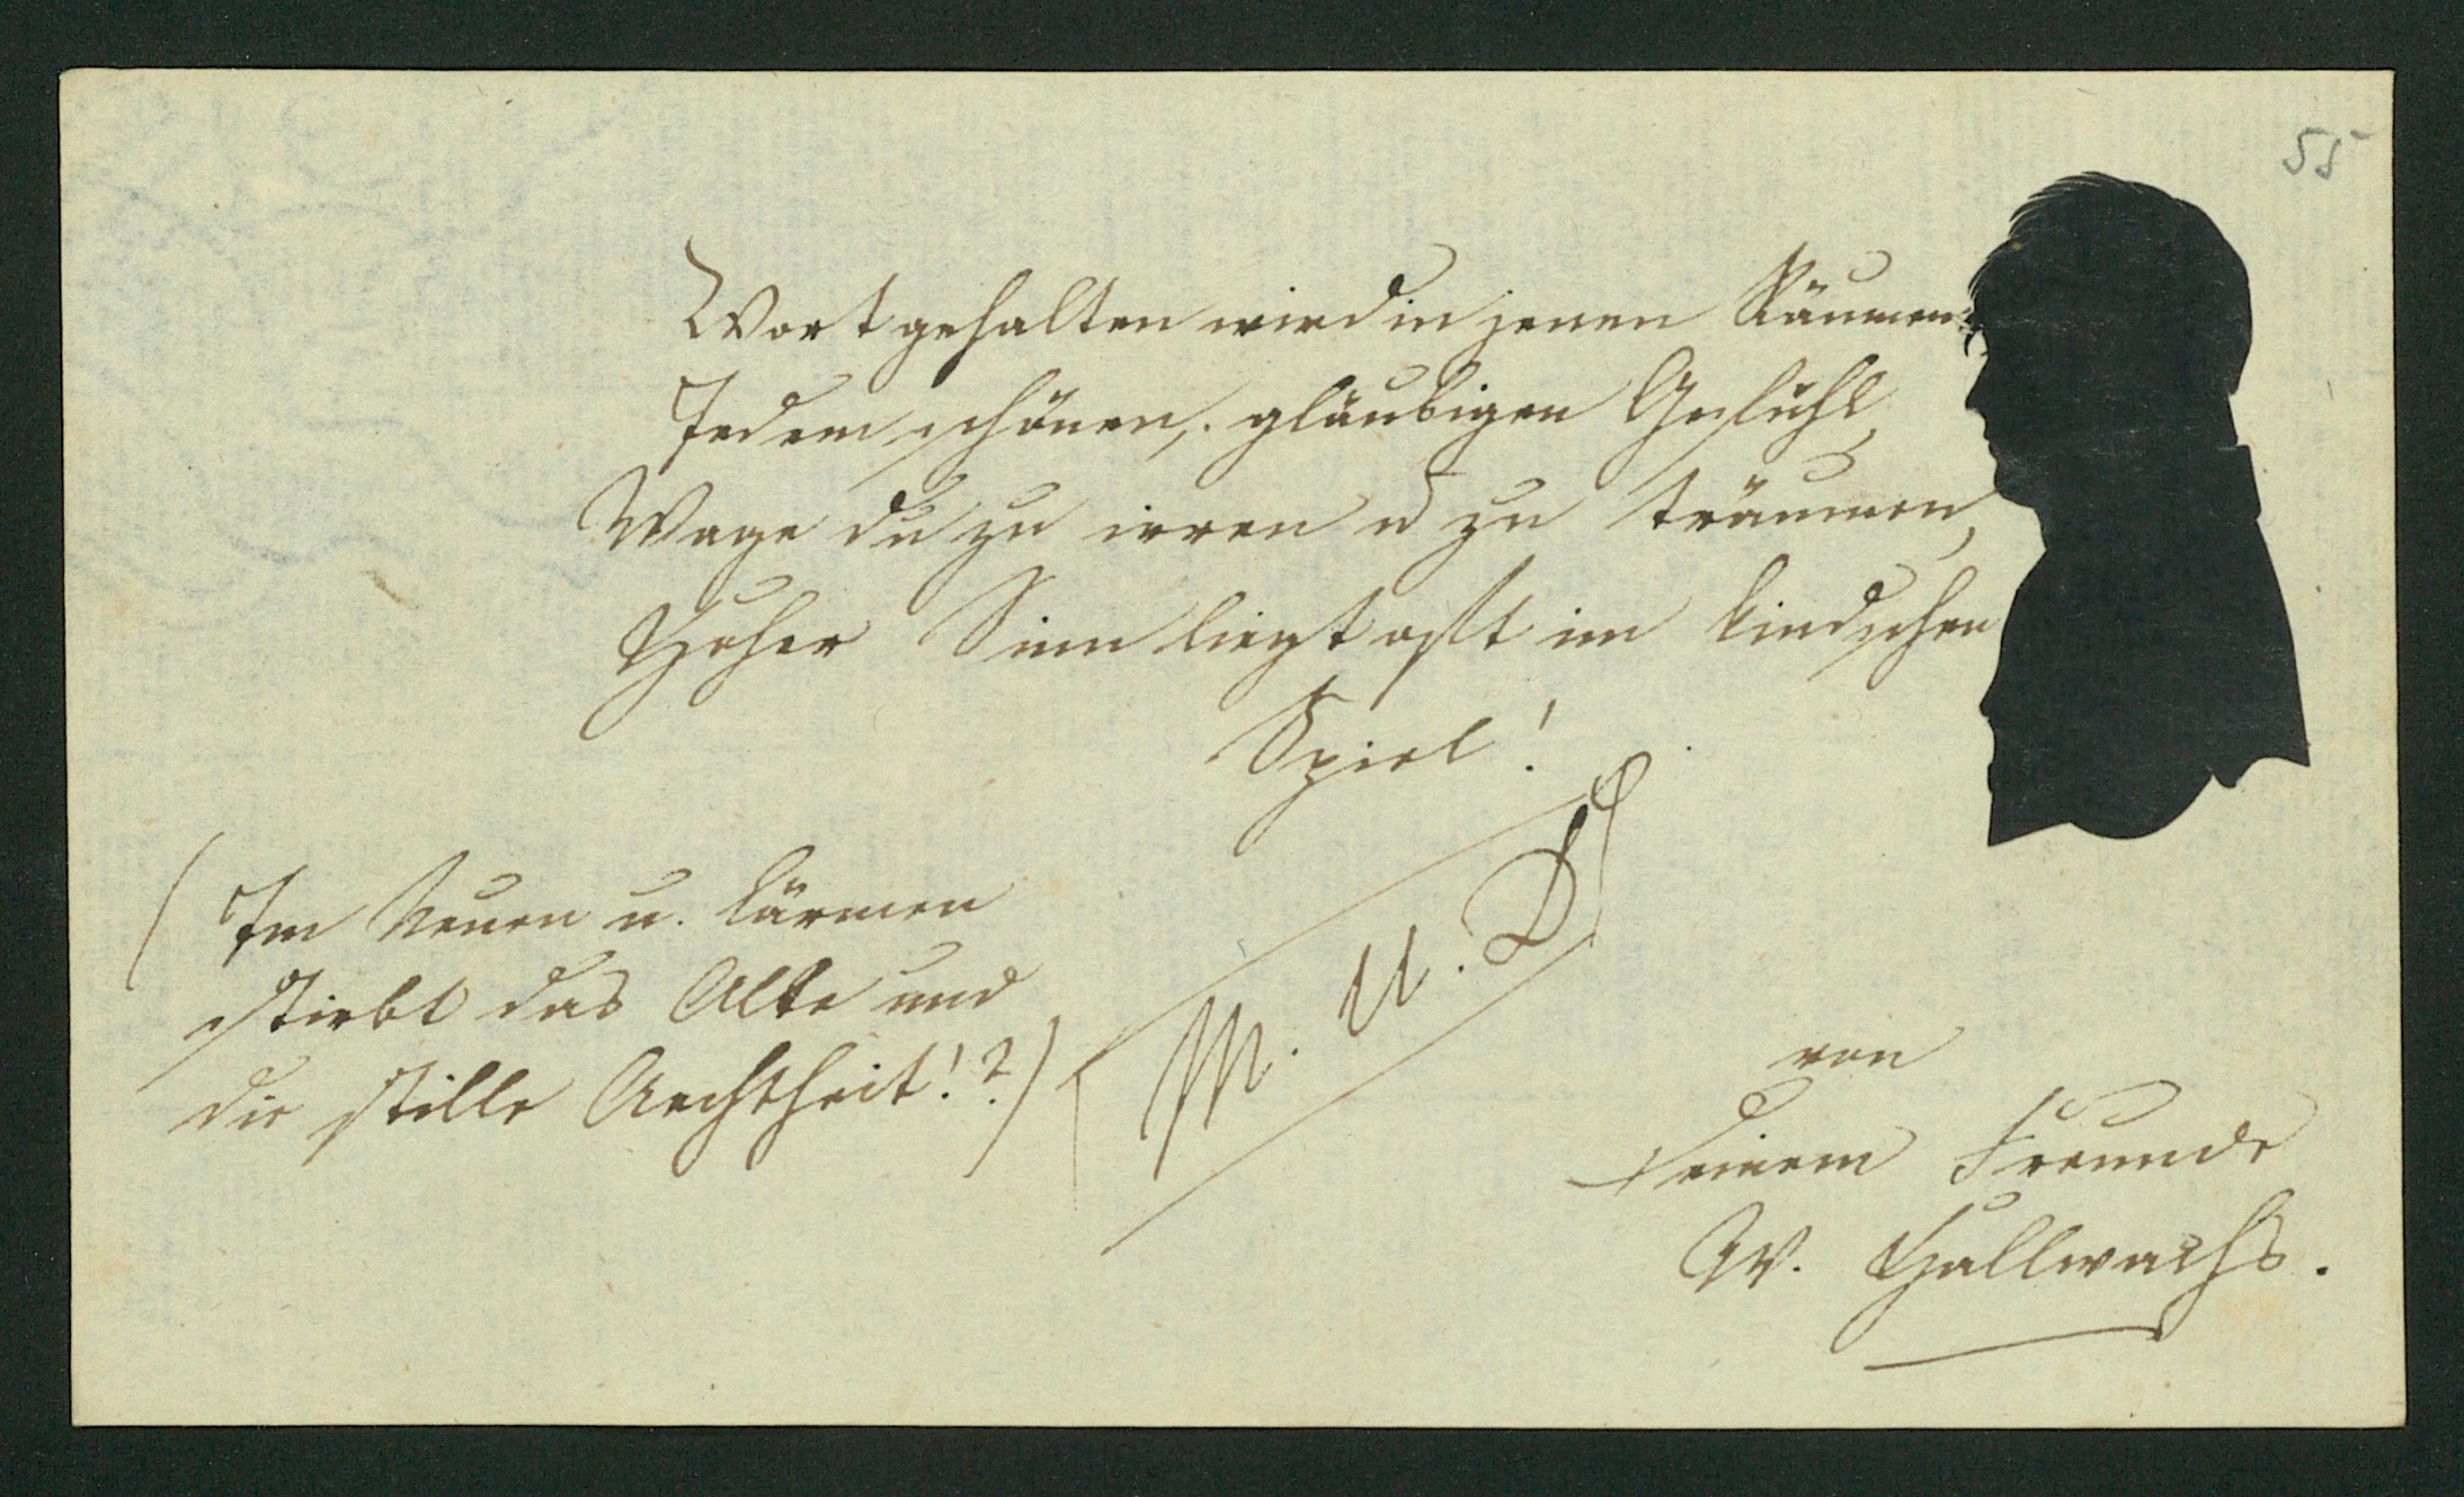 55
Wort gehalten wird in jenen Räumen
Jedem schönen, gläubigen Gefühl,
Wage du zu irren u zu träumen,
Hoher Sinn liegt oft im kindschen
Spiel!
(Im Neuen u. Lärmen
stirbt das Alte und
die stille Aechtheit!?)
M. U. D.
von
Deinem Freunde
W. Hallwachs.